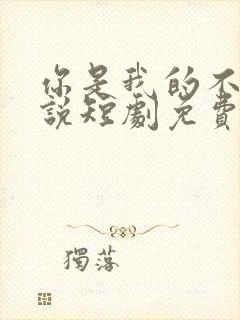 你是我的不
說短劇免費
獨落